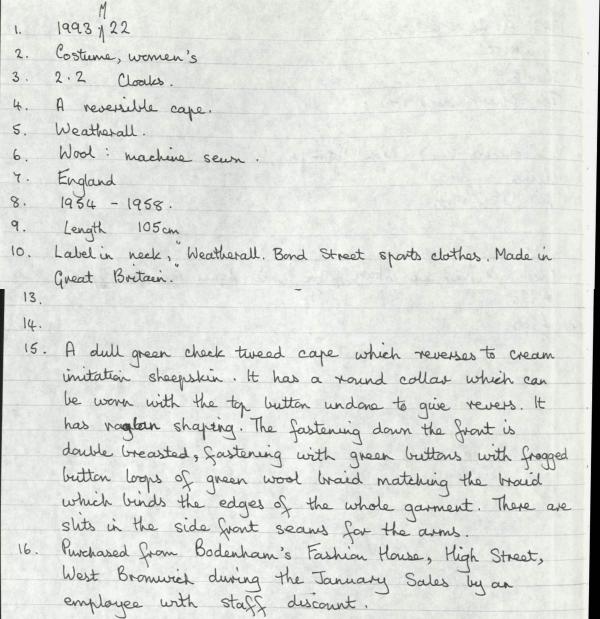 1. 1993 M 22
2. Costume, women's
3. 2.2 Cloaks.
4. A reversible cape.
5. Weatherall.
6. Wool: machine sewn.
7. England
8. 1954 - 1958.
9. Length 105cm
10. Label in neck, "Weatherall. Bond Street sports clothes. Made in
Great Britain."
13.
14.
15. A dull green check tweed cape which reverses to cream
imitation sheepskin. It has a round collar which can
be worn with the top button undone to give revers. It
has raglan shaping. The fastening down the front is
double breasted, fastening with green buttons with frogged
button loops of green wool braid matching the braid
which binds the edges of the whole garment. There are
slits in the side front seams for the arms.
16. Purchased from Bodenham's Fashion House, High Street,
West Bromwich during the January Sales by an
employee with staff discount.